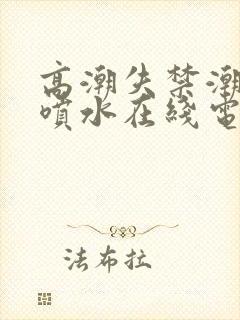 高潮失禁潮
喷水在线电
法布拉